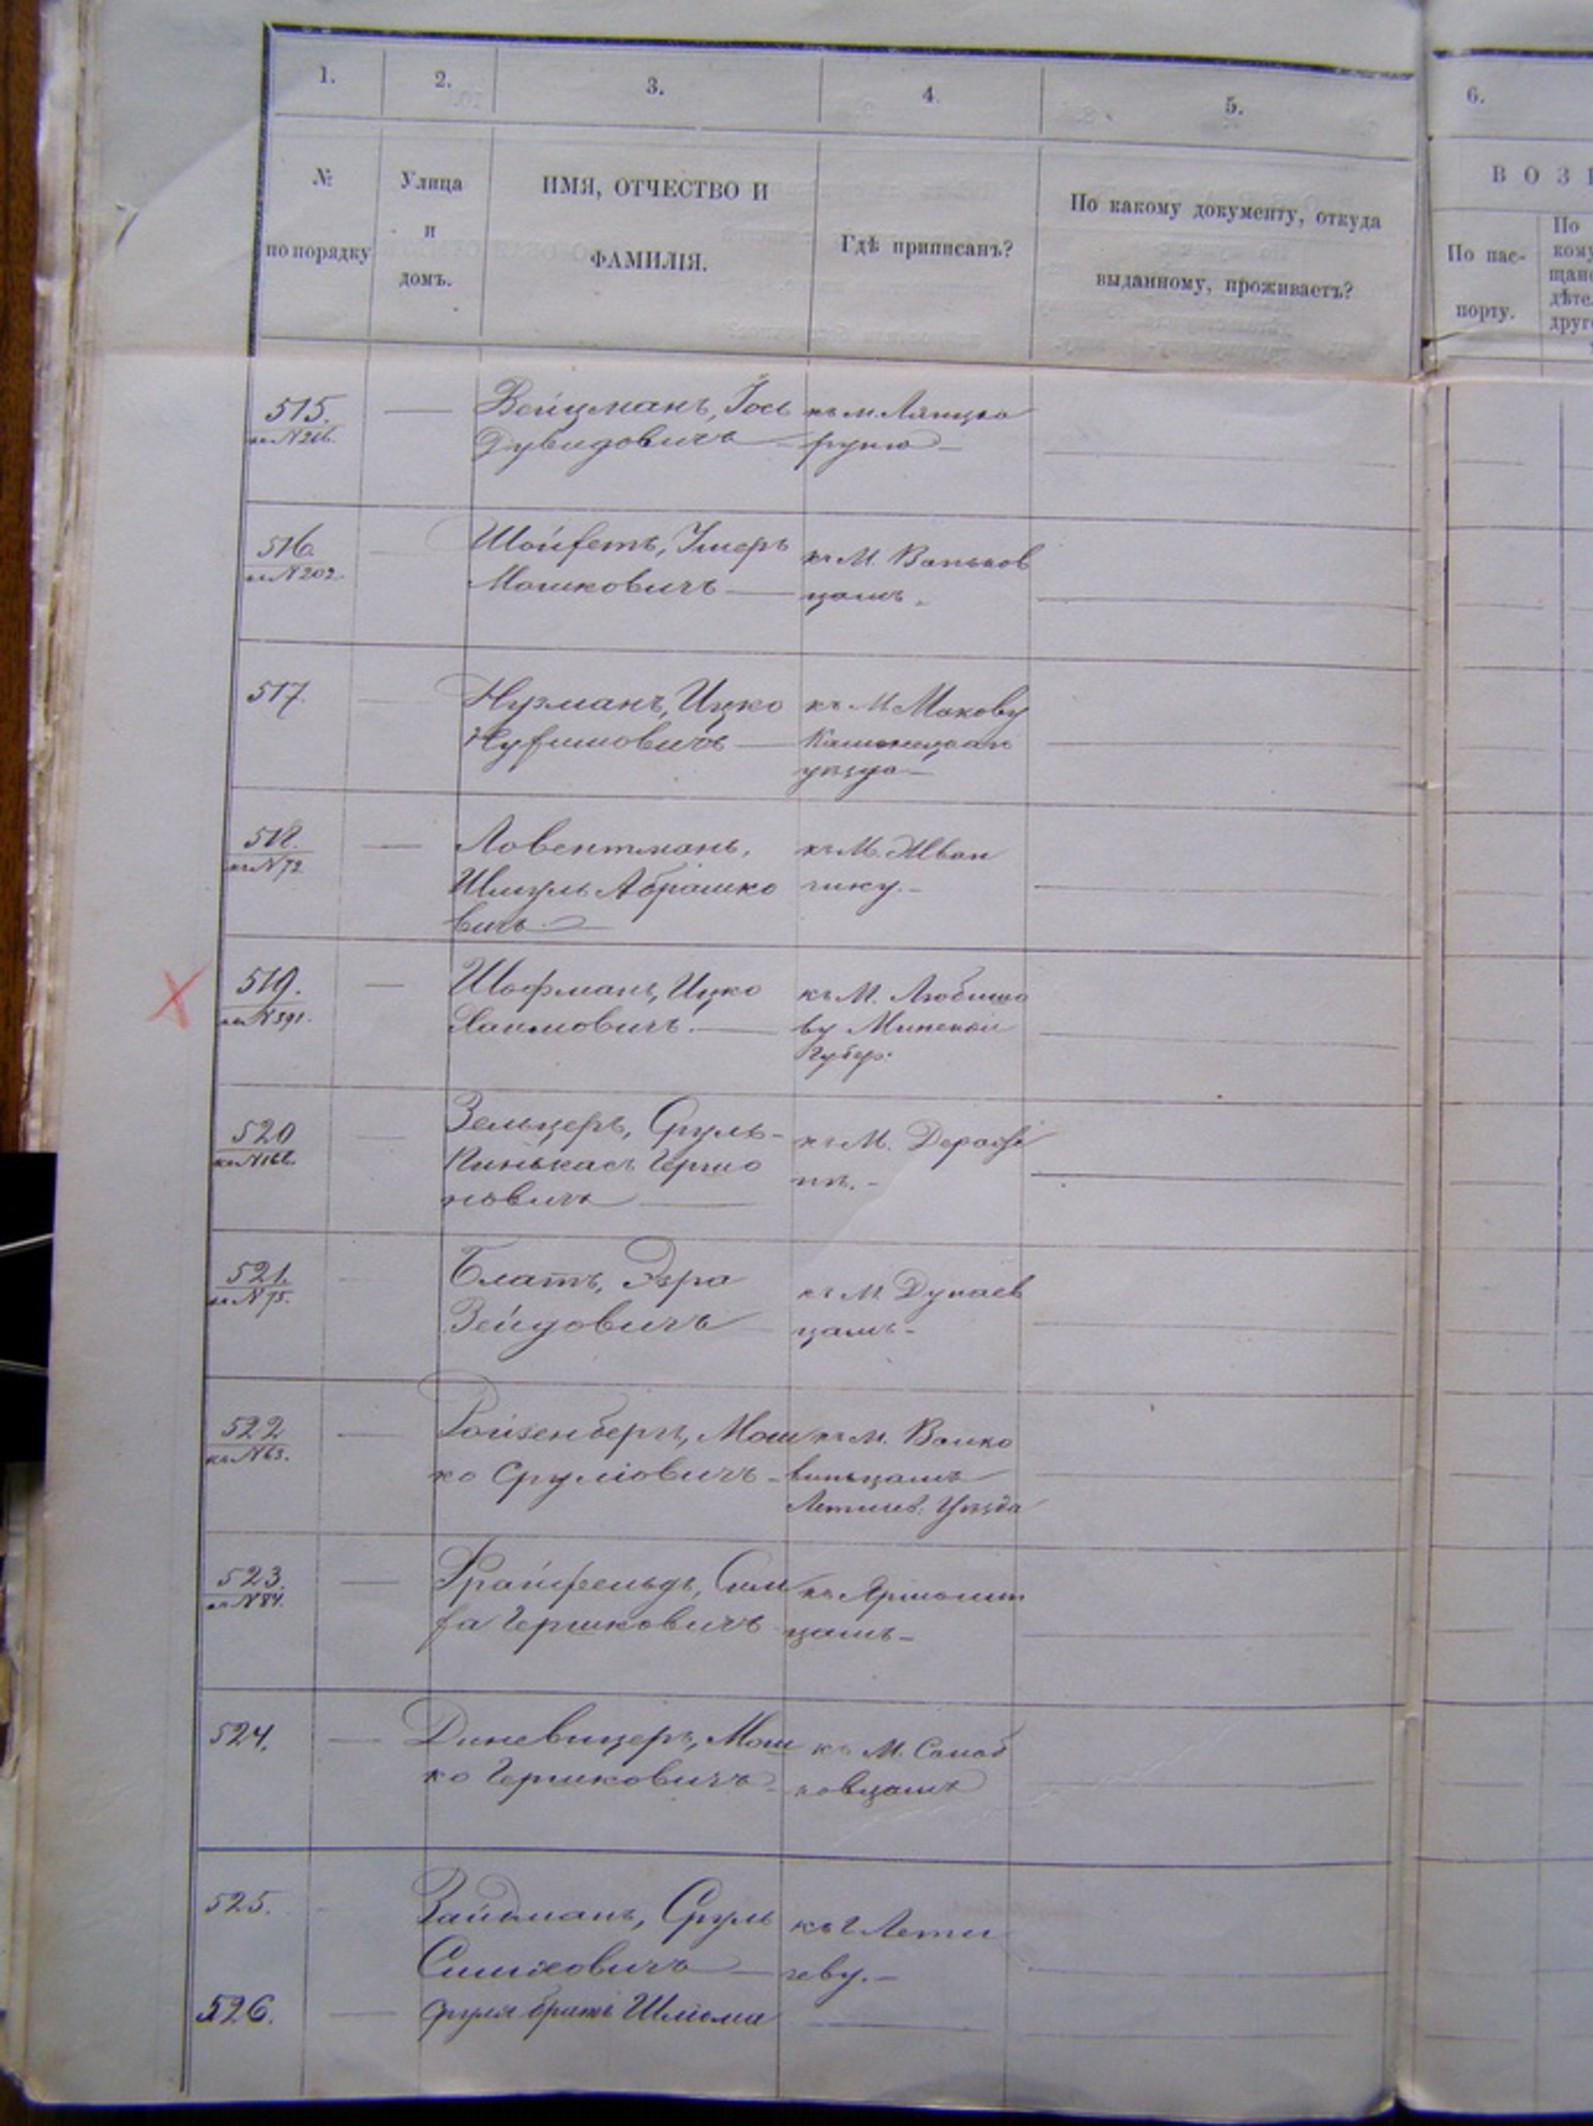 1.
2.
3.
4.
5.
6.
№
по порядку
Улица
и
домъ.
ИМЯ, ОТЧЕСТВО И
ФАМИЛІЯ.
Гдѣ приписанъ?
По какому документу, откуда
выданному, проживаетъ?
В О З
По пас-
порту.
По
кому
щан
дѣте
друг
515.
къ № 266.
Вейцманъ, Іось
Дувидовичъ
къ м. Лянцко
руню
516
къ № 202.
Шойхетъ, Умеръ
Мошковичъ
къ М.Ваньков
цамъ.
517.
Нузманъ, Ицко
Нухимовичъ
къ М. Макову
Каменецкаго
уѣзда
518.
къ № 72
Ловентманъ,
Шмуль Абрашко
вичъ
къ М. Жван
чику.
519.
къ № 391.
Шофманъ, Ицко
Хаимовичъ.
къ М. Любишо
ву Минской
Губер:
520
къ № 166.
Зельцеръ, Сруль-
Пинькасъ Гершо
новичъ
къ М. Деражн
нѣ.
521.
къ № 75.
Блатъ, Эзра
Зейдовичъ
къ М. Дунаев
цамъ
522
къ № 63.
Ройзенбергъ, Мош
ко Сруліовичъ
къ М. Волко
винцамъ
Летичев. Уѣзда
523.
къ № 84.
Фрайфельдъ, Сим
ха Гершковичъ
къ Ярмолин
цамъ
524.
Диневицеръ, Мош
ко Гершковичъ
къ М. Солоб
ковцамъ
525.
Зайдманъ, Сруль
Симховичъ
къ г. Лети
чеву.
526.
Сруля братъ Шліома